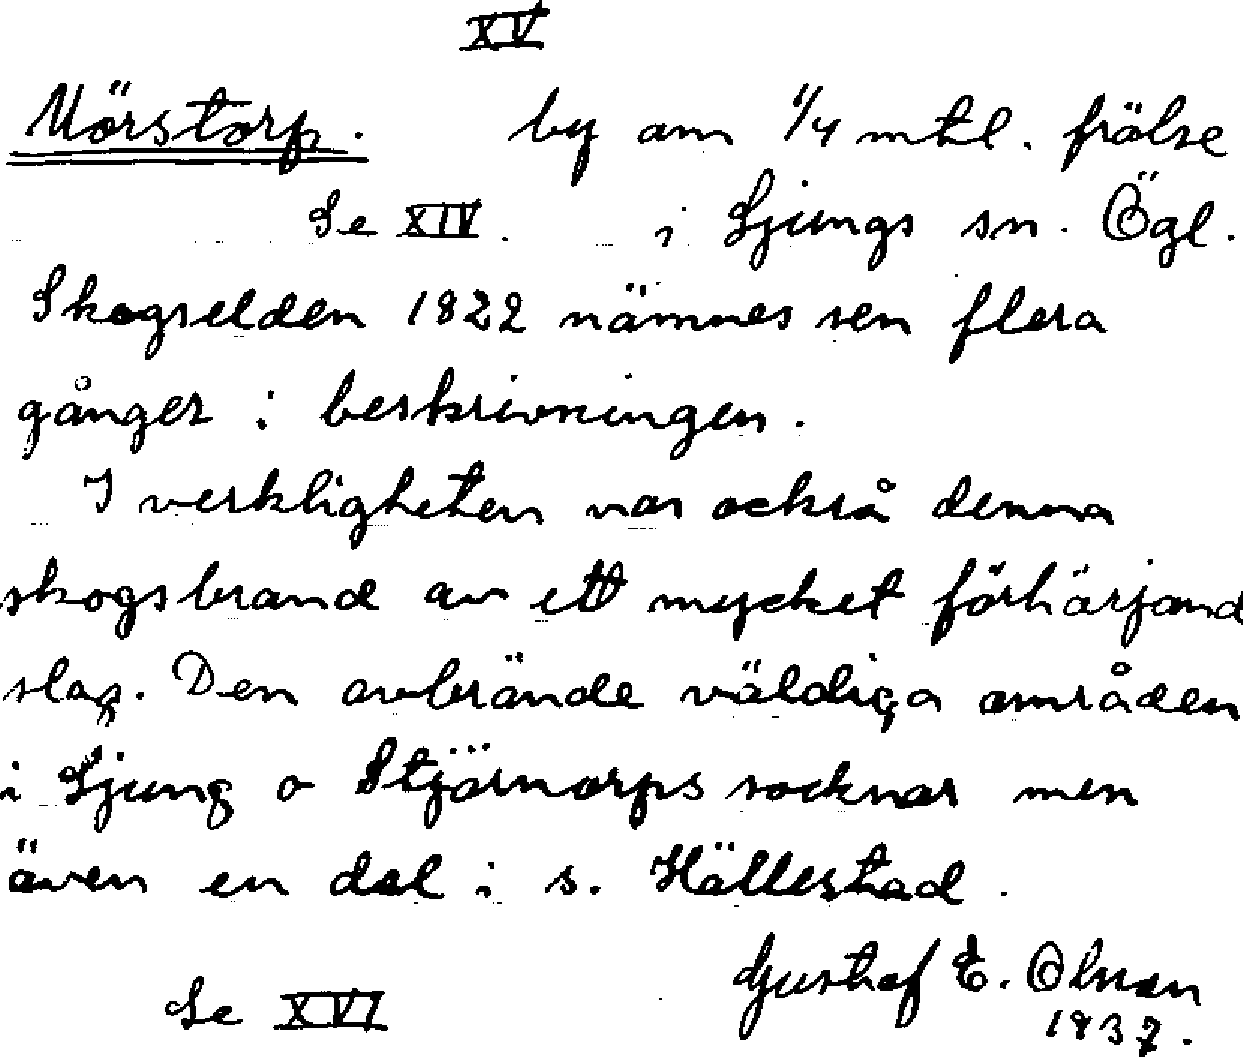 XV
Mörstorp. by om 1/4 mtl. frälse
Se XIV. i Ljungs sn. Ögl.
Skogselden 1822 nämnes sen flera
gånger i beskrivningen.
I verkligheten var också denna
skogsbrand av ett mycket förhärjand
slag. Den avbrände väldiga områden
i Ljung o Stjärnorps socknar men
även en del i s. Hällestad.
Gustaf E. Olsson
Se XVI 1937.